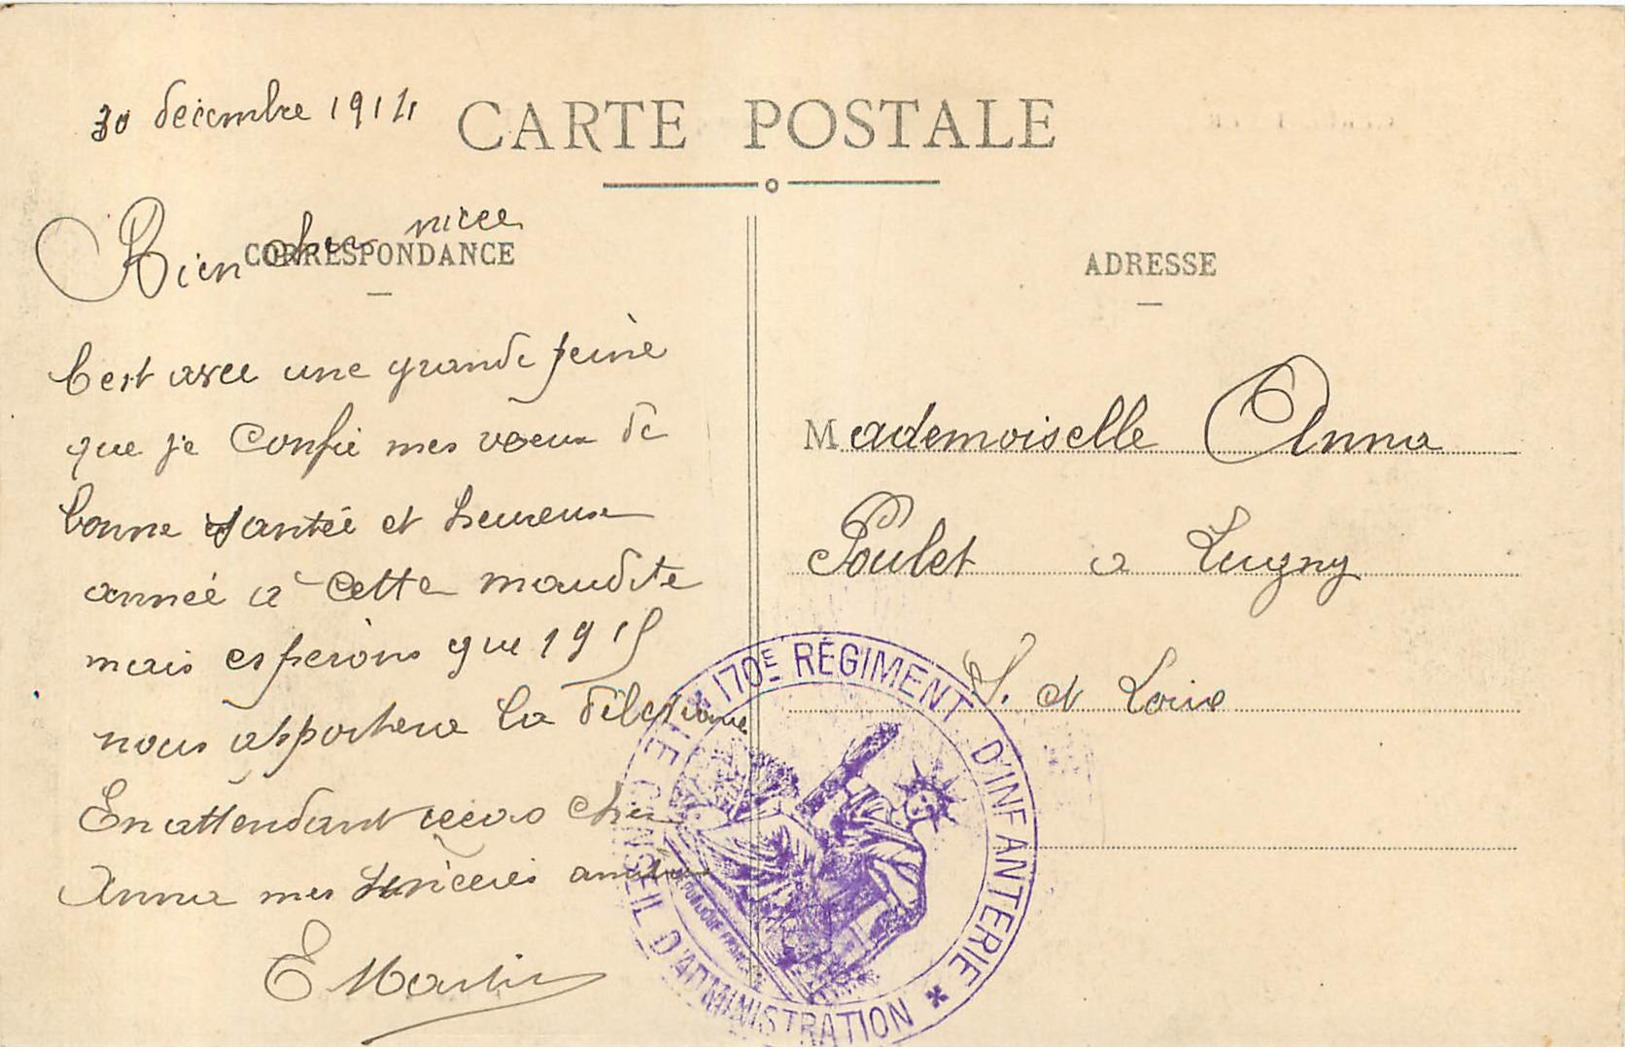 30 décembre 1914
CARTE POSTALE
CORRESPONDANCE
Bien cher nice
C'est avec une grande peine
que je confie mes voeux de
bonne santée et heureuse
année a cette maudite
mais esperons que 1915
nous apportera la
En attendant recois cher
Anna mes sincères amitiés
E Martin
ADRESSE
Mademoiselle Anna
Poulet a Lugny
S. et Loire
170E RÉGIMENT D'INFANTERIE
LE CONSEIL D'ADMINISTRATION